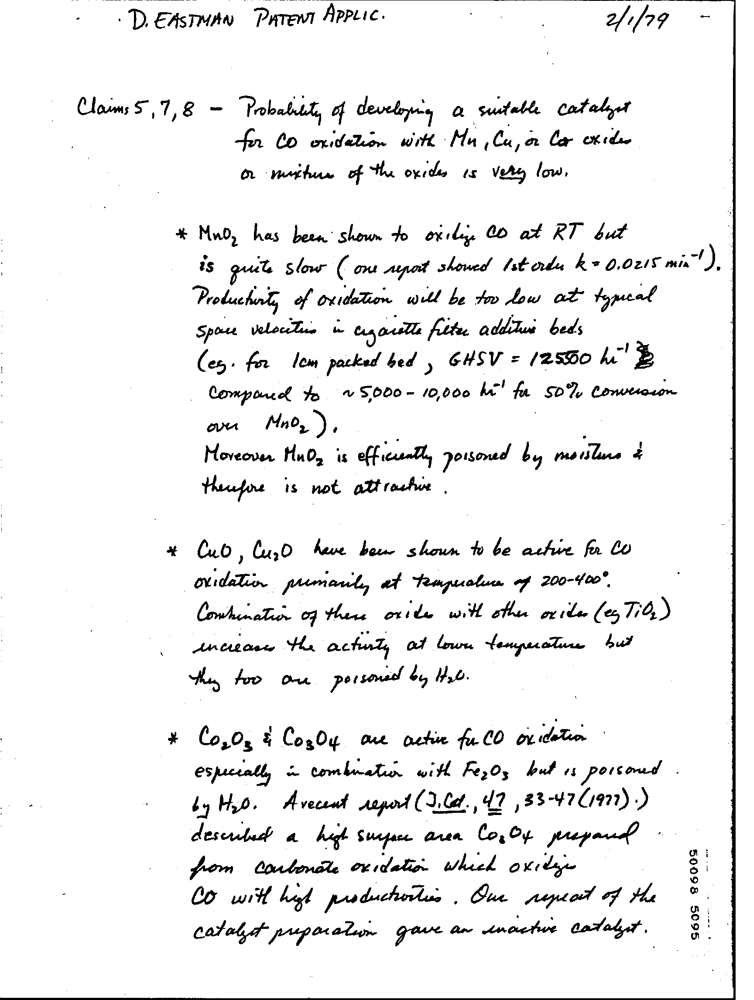 D. EASTMAN PATENT APPLIC. 2/1/79
Claims 5, 7, 8 - Probability of developing a suitable catalyst
for CO oxidation with Mn, Cu, or Co oxides
or mixture of the oxides is very low.
* MnO2 has been shown to oxidize CO at RT but
is quite slow (one report showed 1st order k = 0.0215 min-1).
Productivity of oxidation will be too low at typical
space velocities in cigarette filter additive beds
(eg. for 1cm packed bed, GHSV = 125500 hr-1
compared to ~5,000-10,000 hr-1 for 50% conversion
over MnO2).
Moreover MnO2 is efficiently poisoned by moisture &
therefore is not attractive.
* CuO, Cu2O have been shown to be active for CO
oxidation primarily at temperature of 200-400°.
Combination of these oxides with other oxides (eg TiO2)
increases the activity at lower temperature but
they too are poisoned by H2O.
* Co2O3 & Co3O4 are active for CO oxidation
especially in combination with Fe2O3 but is poisoned
by H2O. A recent report (J. Cat., 47, 33-47 (1977).)
described a high surface area Co3O4 prepared
from carbonate oxidation which oxidize
CO with high productivities. Our repeat of the
catalyst preparation gave an inactive catalyst.
50098 5095